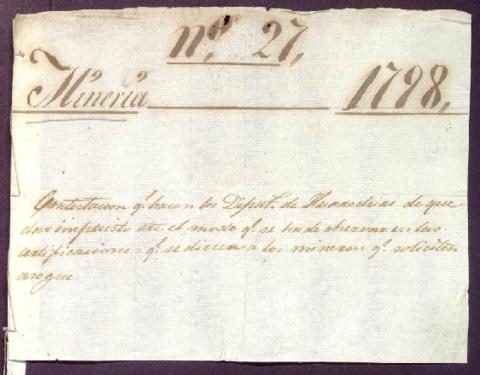 N.º 27,
Minería 1798,
Contestacion q.e hacen los Diput.s de Huarochiri de que
dar impuesto del modo q.e se ha de observar en las
certificaciones q.e se dieren a los mineros q.e soliciten
asogue